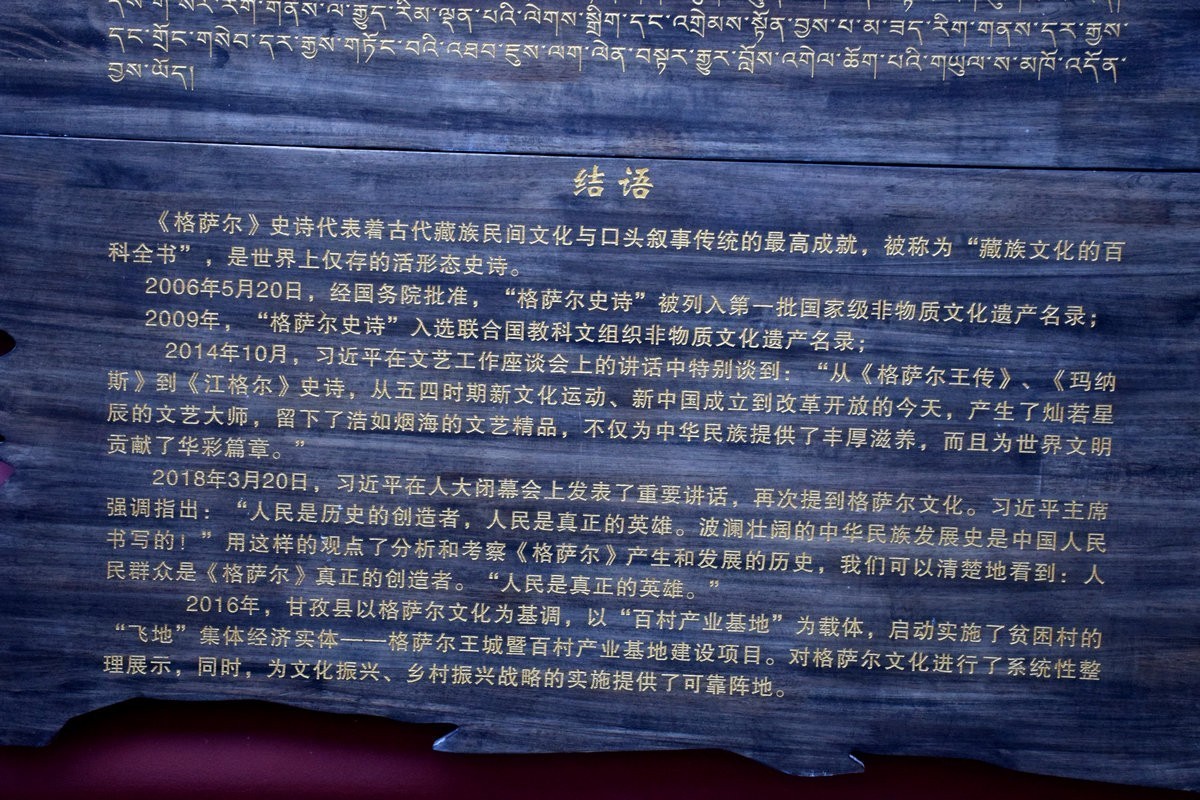 དང་གྲོང་གསེབ་དར་རྒྱས་གཏོང་བའི་འཐབ་ཇུས་ལག་ལེན་བསྟར་རྒྱུར་བློས་འགེལ་ཆོག་པའི་གཡུལ་ས་མཁོ་འདོན་
བྱས་ཡོད།
结语
《格萨尔》史诗代表着古代藏族民间文化与口头叙事传统的最高成就，被称为“藏族文化的百
科全书”，是世界上仅存的活形态史诗。
2006年5月20日，经国务院批准，“格萨尔史诗”被列入第一批国家级非物质文化遗产名录；
2009年，“格萨尔史诗”入选联合国教科文组织非物质文化遗产名录；
2014年10月，习近平在文艺工作座谈会上的讲话中特别谈到：“从《格萨尔王传》、《玛纳
斯》到《江格尔》史诗，从五四时期新文化运动、新中国成立到改革开放的今天，产生了灿若星
辰的文艺大师，留下了浩如烟海的文艺精品，不仅为中华民族提供了丰厚滋养，而且为世界文明
贡献了华彩篇章。”
2018年3月20日，习近平在人大闭幕会上发表了重要讲话，再次提到格萨尔文化。习近平主席
强调指出：“人民是历史的创造者，人民是真正的英雄。波澜壮阔的中华民族发展史是中国人民
书写的！”用这样的观点了分析和考察《格萨尔》产生和发展的历史，我们可以清楚地看到：人
民群众是《格萨尔》真正的创造者。“人民是真正的英雄。”
2016年，甘孜县以格萨尔文化为基调，以“百村产业基地”为载体，启动实施了贫困村的
“飞地”集体经济实体——格萨尔王城暨百村产业基地建设项目。对格萨尔文化进行了系统性整
理展示，同时，为文化振兴、乡村振兴战略的实施提供了可靠阵地。